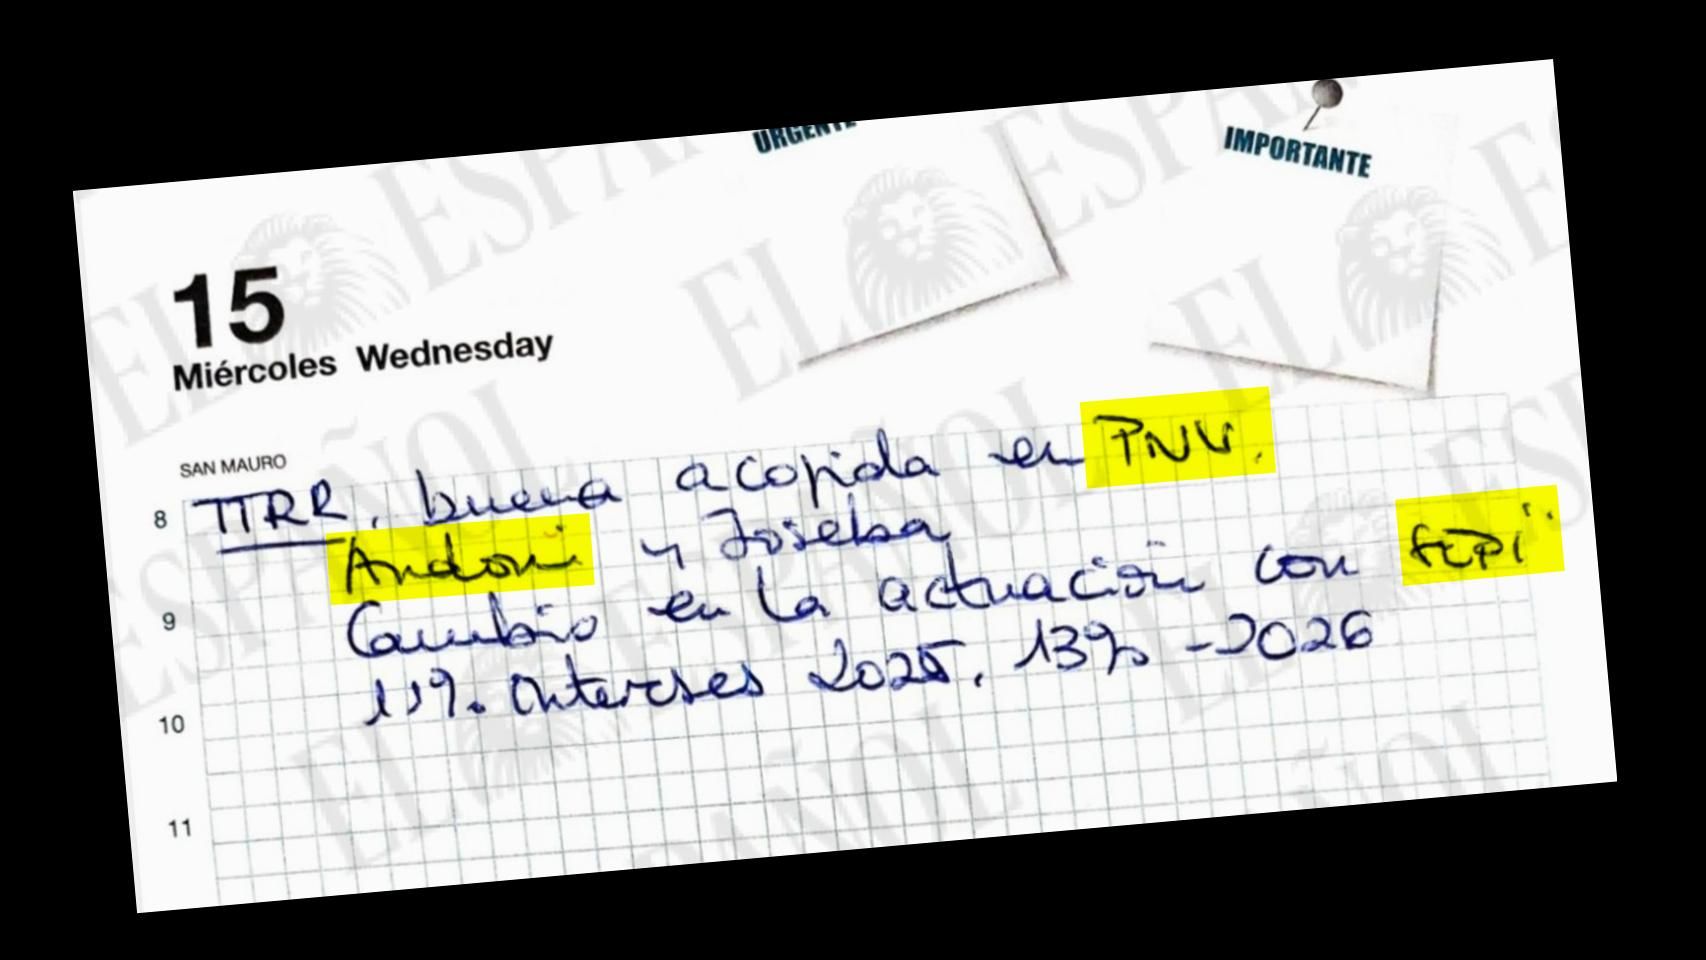 URGENTE
IMPORTANTE
15
Miércoles Wednesday
SAN MAURO
8
TTRR, buena acogida en PNV.
Andoni y Joseba
9
Cambio en la actuación con SEPI
11% intereses 2025, 13% - 2026
10
11
EL ESPAÑOL